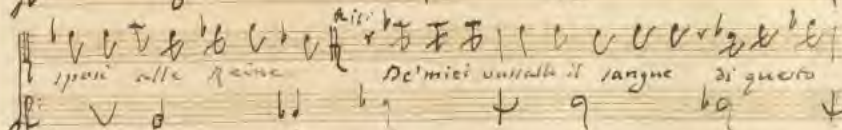 sposi alle Reine De' miei vassalli il sangue di questo